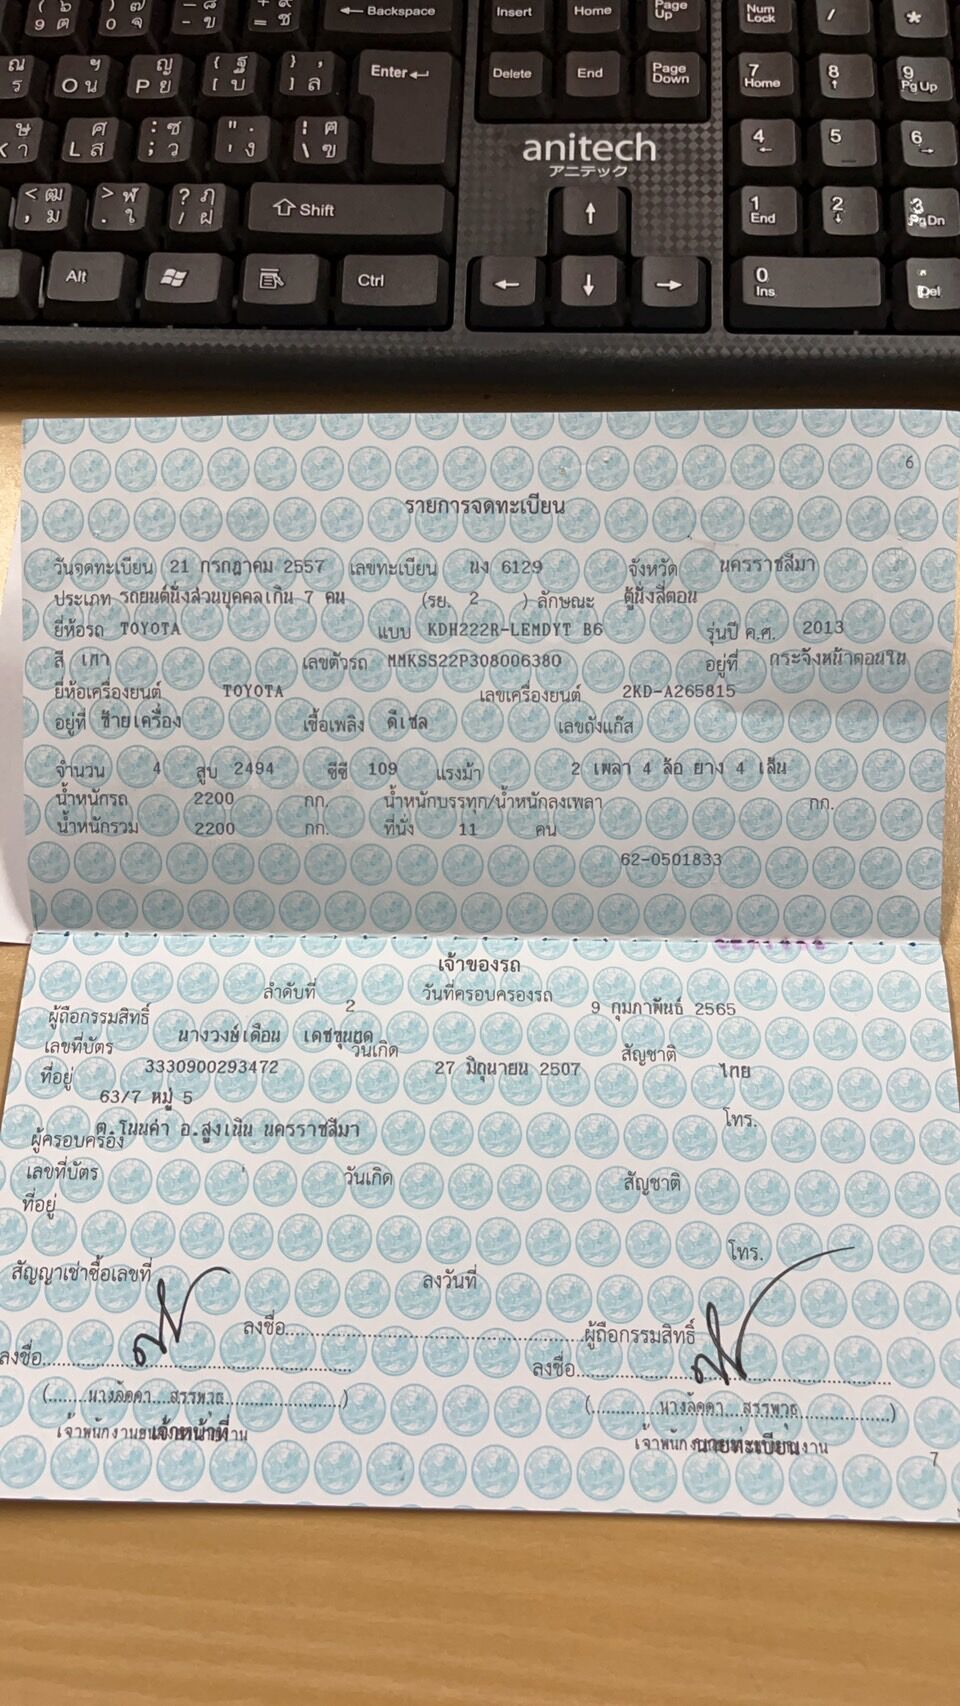 Backspace Insert Home Page Up Num Lock / *
Enter Delete End Page Down 7 Home 8 9 Pg Up
anitech
アニテック
4 5 6
Shift 1 End 2 3 Pg Dn
Alt Ctrl 0 Ins Del
6
รายการจดทะเบียน
วันจดทะเบียน 21 กรกฎาคม 2557 เลขทะเบียน นง 6129 จังหวัด นครราชสีมา
ประเภท รถยนต์นั่งส่วนบุคคลเกิน 7 คน (รย. 2 ) ลักษณะ ตู้นั่งสี่ตอน
ยี่ห้อรถ TOYOTA แบบ KDH222R-LEMDYT B6 รุ่นปี ค.ศ. 2013
สี เทา เลขตัวรถ MMKSS22P308006380 อยู่ที่ กระจังหน้าตอนใน
ยี่ห้อเครื่องยนต์ TOYOTA เลขเครื่องยนต์ 2KD-A265815
อยู่ที่ ซ้ายเครื่อง เชื้อเพลิง ดีเซล เลขถังแก๊ส
จำนวน 4 สูบ 2494 ซีซี 109 แรงม้า 2 เพลา 4 ล้อ ยาง 4 เส้น
น้ำหนักรถ 2200 กก. น้ำหนักบรรทุก/น้ำหนักลงเพลา กก.
น้ำหนักรวม 2200 กก. ที่นั่ง 11 คน
62-0501833
เจ้าของรถ
ลำดับที่ 2 วันที่ครอบครองรถ 9 กุมภาพันธ์ 2565
ผู้ถือกรรมสิทธิ์ นางวงษ์เดือน เดชขุนทด
เลขที่บัตร 3330900293472 วันเกิด 27 มิถุนายน 2507 สัญชาติ ไทย
ที่อยู่ 63/7 หมู่ 5
ต.โนนค่า อ.สูงเนิน นครราชสีมา โทร.
ผู้ครอบครอง
เลขที่บัตร วันเกิด สัญชาติ
ที่อยู่
โทร.
สัญญาเช่าซื้อเลขที่ ลงวันที่
ลงชื่อ ผู้ถือกรรมสิทธิ์
ลงชื่อ ลงชื่อ
(นางลัดดา สรรพาวุธ) (นางลัดดา สรรพาวุธ)
เจ้าหน้าที่ นายทะเบียน
7